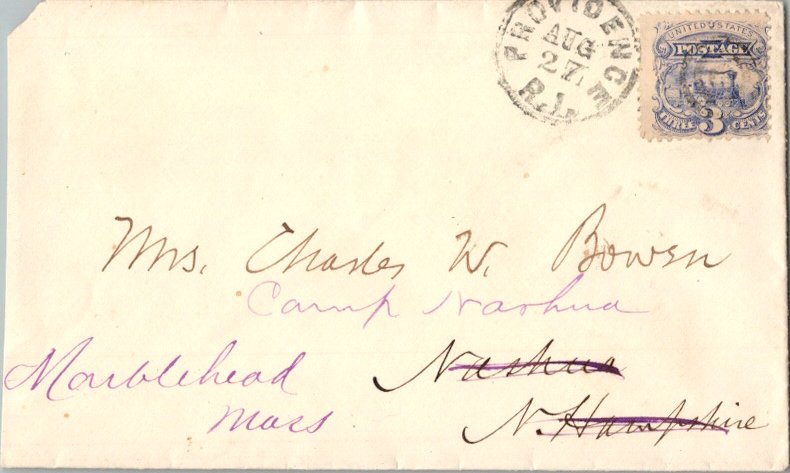 PROVIDENCE
AUG
27
R.I.
UNITED STATES
POSTAGE
THREE 3 CENTS
Mrs. Charles W. Bowen
Camp Nashua
Nashua
Marblehead
Mass
N. Hampshire